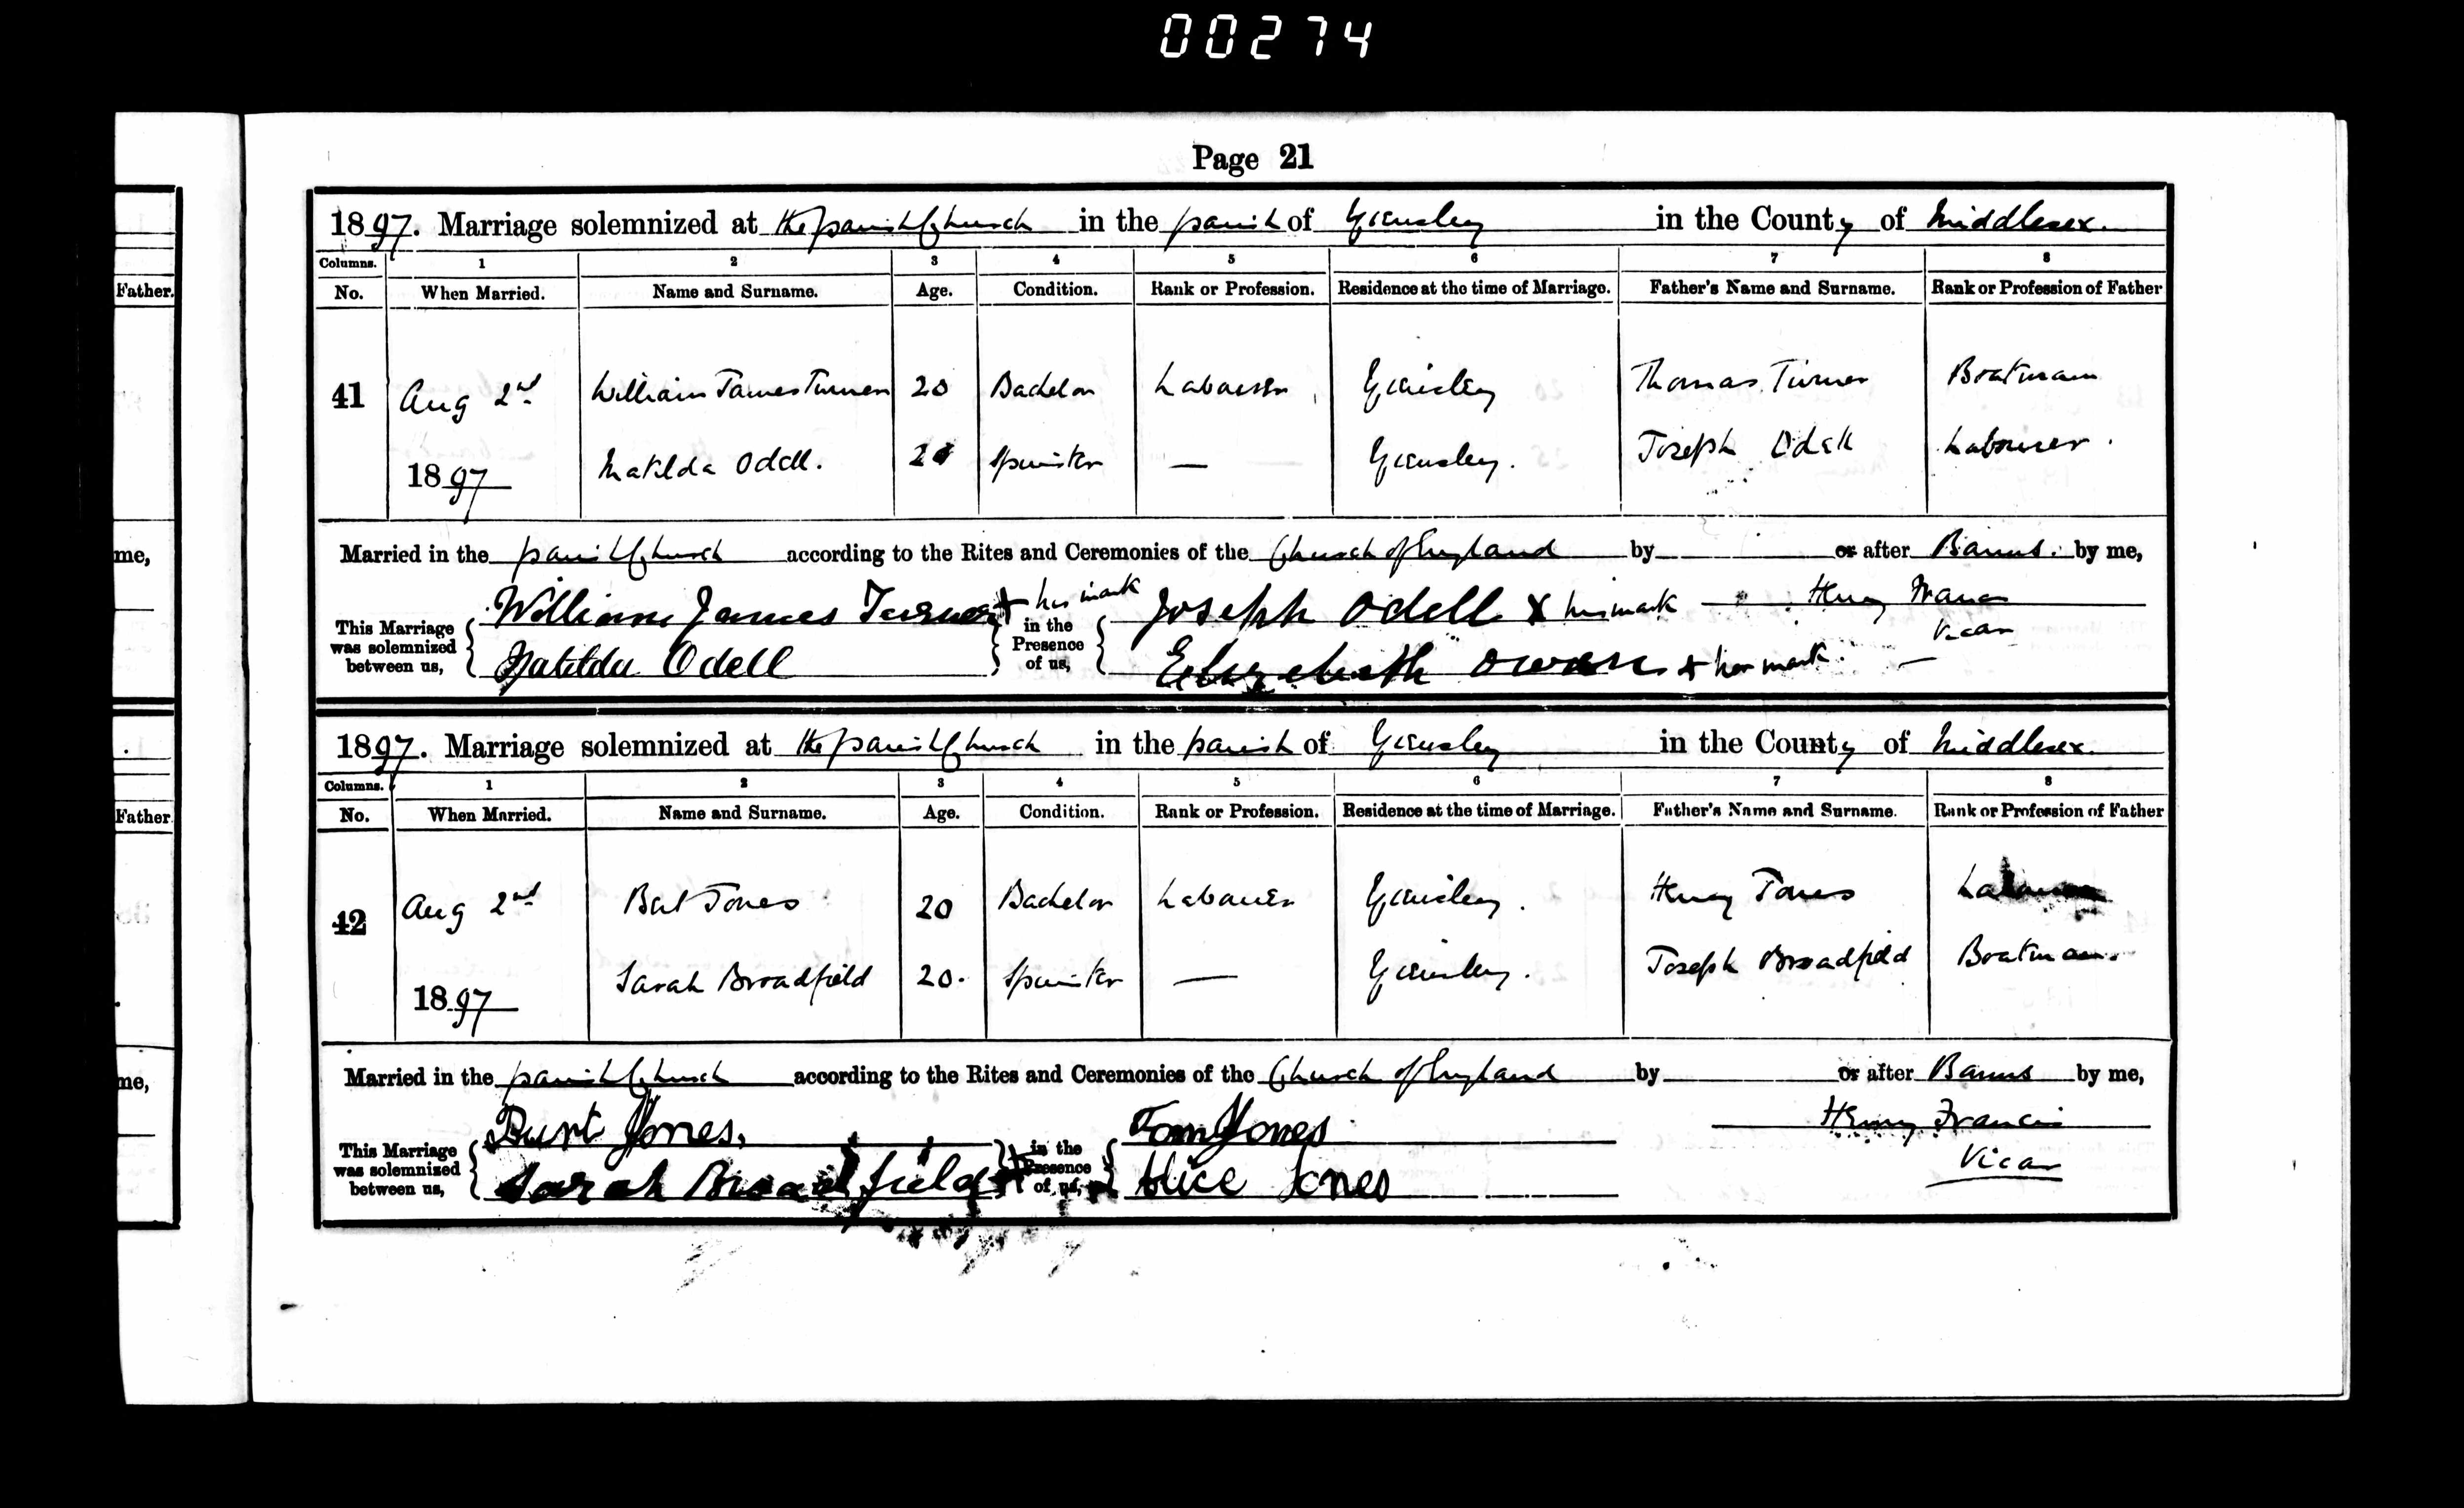 00274
Page 21
1897. Marriage solemnized at the parish Church in the parish of Yiewsley in the County of Middlesex.
Columns. 1 2 3 4 5 6 7 8
Father. No. When Married. Name and Surname. Age. Condition. Rank or Profession. Residence at the time of Marriage. Father's Name and Surname. Rank or Profession of Father
41 Aug 2nd William James Turner 20 Bachelor Labourer Yiewsley Thomas Turner Boatman
1897 Matilda Odell. Spinster — Yiewsley. Joseph Odell Labourer.
me, Married in the parish Church according to the Rites and Ceremonies of the Church of England by or after Banns. by me,
This Marriage was solemnized between us, { William James Turner + his mark } in the Presence of us, { Joseph Odell X his mark — Henry Francis
Matilda Odell Elizabeth Owen + her mark. Vicar
1897. Marriage solemnized at the parish Church in the parish of Yiewsley in the County of Middlesex.
Columns. 1 2 3 4 5 6 7 8
Father. No. When Married. Name and Surname. Age. Condition. Rank or Profession. Residence at the time of Marriage. Father's Name and Surname. Rank or Profession of Father
42 Aug 2nd Bert Jones 20 Bachelor Labourer Yiewsley. Henry Jones Labourer
1897 Sarah Broadfield 20. Spinster — Yiewsley. Joseph Broadfield Boatman.
me, Married in the parish Church according to the Rites and Ceremonies of the Church of England by or after Banns by me,
This Marriage was solemnized between us, { Burt Jones, } in the Presence of us, { Tom Jones Henry Francis
Sarah Broadfield Alice Jones Vicar